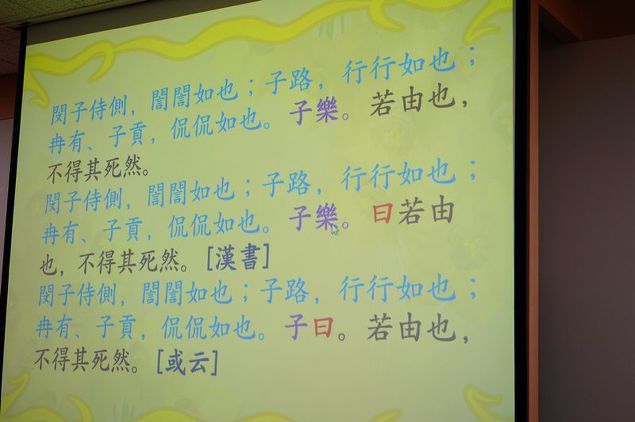 閔子侍側，誾誾如也；子路，行行如也；
冉有、子貢，侃侃如也。子樂。若由也，
不得其死然。
閔子侍側，誾誾如也；子路，行行如也；
冉有、子貢，侃侃如也。子樂。曰若由
也，不得其死然。[漢書]
閔子侍側，誾誾如也；子路，行行如也；
冉有、子貢，侃侃如也。子曰。若由也，
不得其死然。[或云]